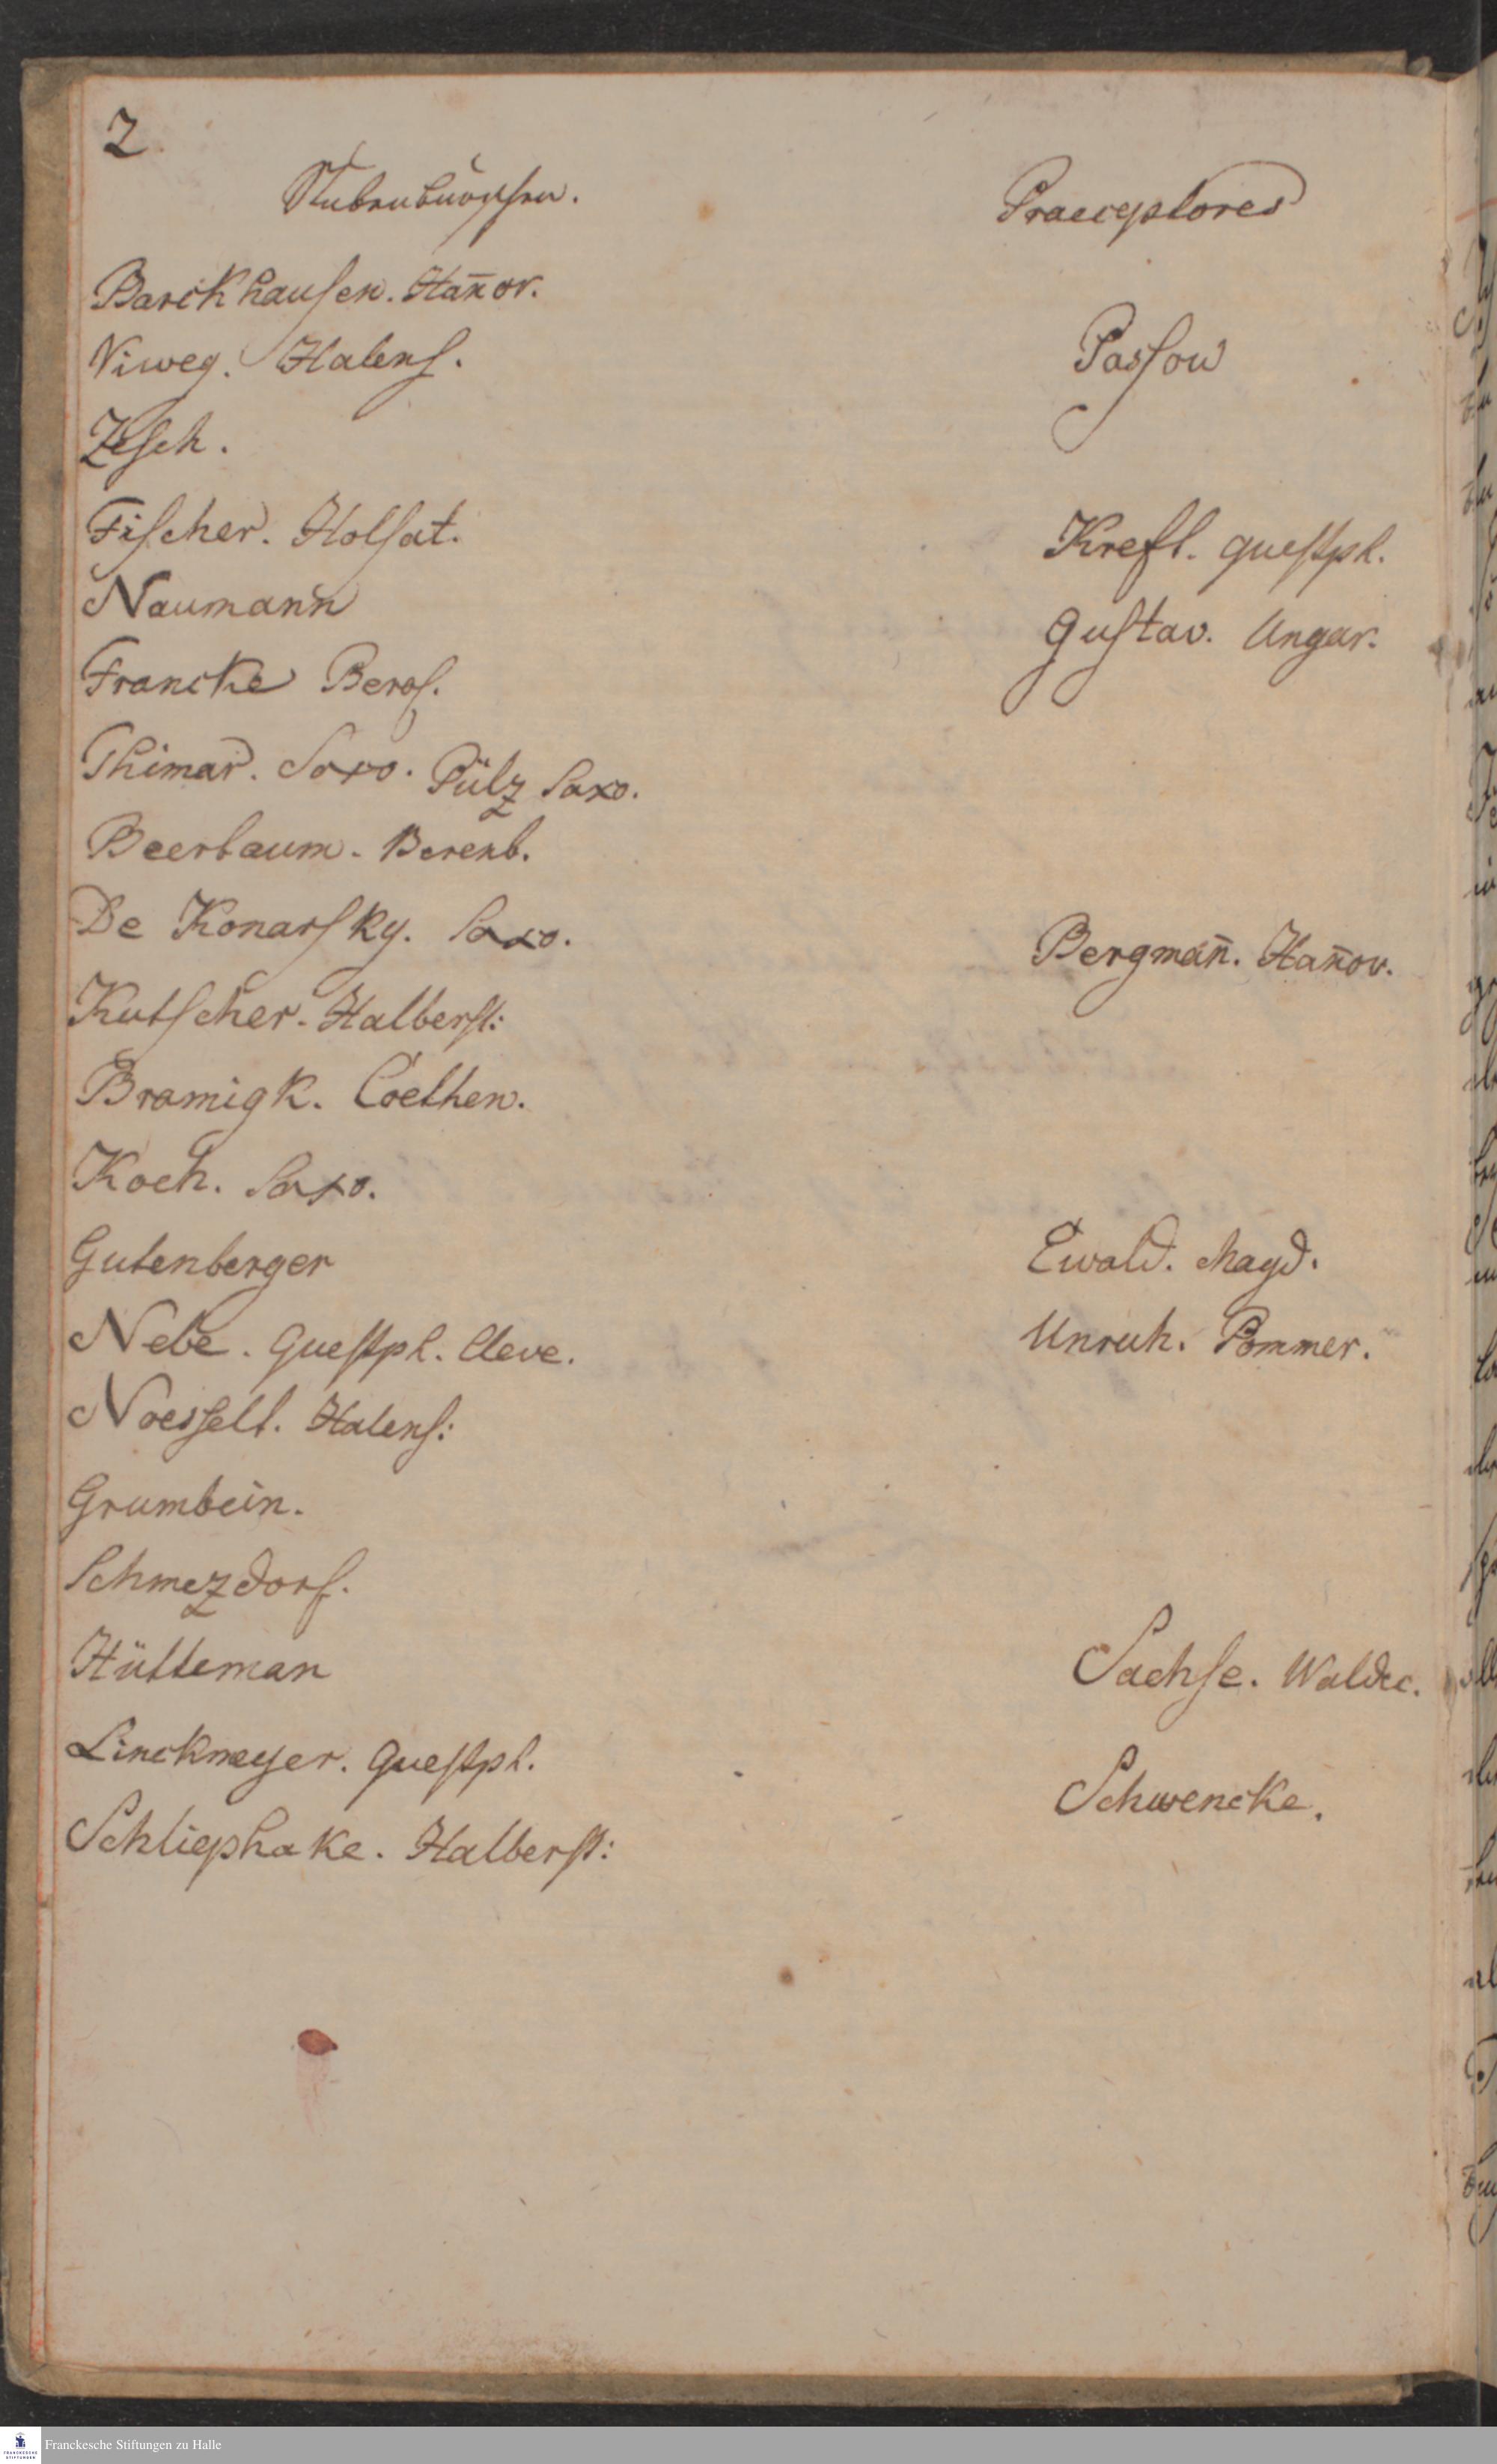 2
Stubenburschen.
Barckhausen. Han̄or.
Viweg. Halens.
Zesch.
Fischer. Holsat.
Naumann
Francke
Thimar. Saxo. Pülz Saxo.
Beerbaum. Berenb.
De Konarsky. Saxo.
Kutscher. Halberst:
Bramigk. Coethen.
Koch. Saxo.
Gutenberger
Nebe. Guestph. Cleve.
Noesselt. Halens:
Grumbein.
Schmezdorf.
Hütteman
Linckmeyer. Guestph.
Schliephake. Halberst:
Praeceptores
Passow
Kreft. Guestph.
Gustav. Ungar.
Bergman̄. Han̄ov.
Ewald. Magd.
Unruh. Pommer.
Sachse. Waldec.
Schwencke.
FRANCKESCHE
STIFTUNGEN
Franckesche Stiftungen zu Halle